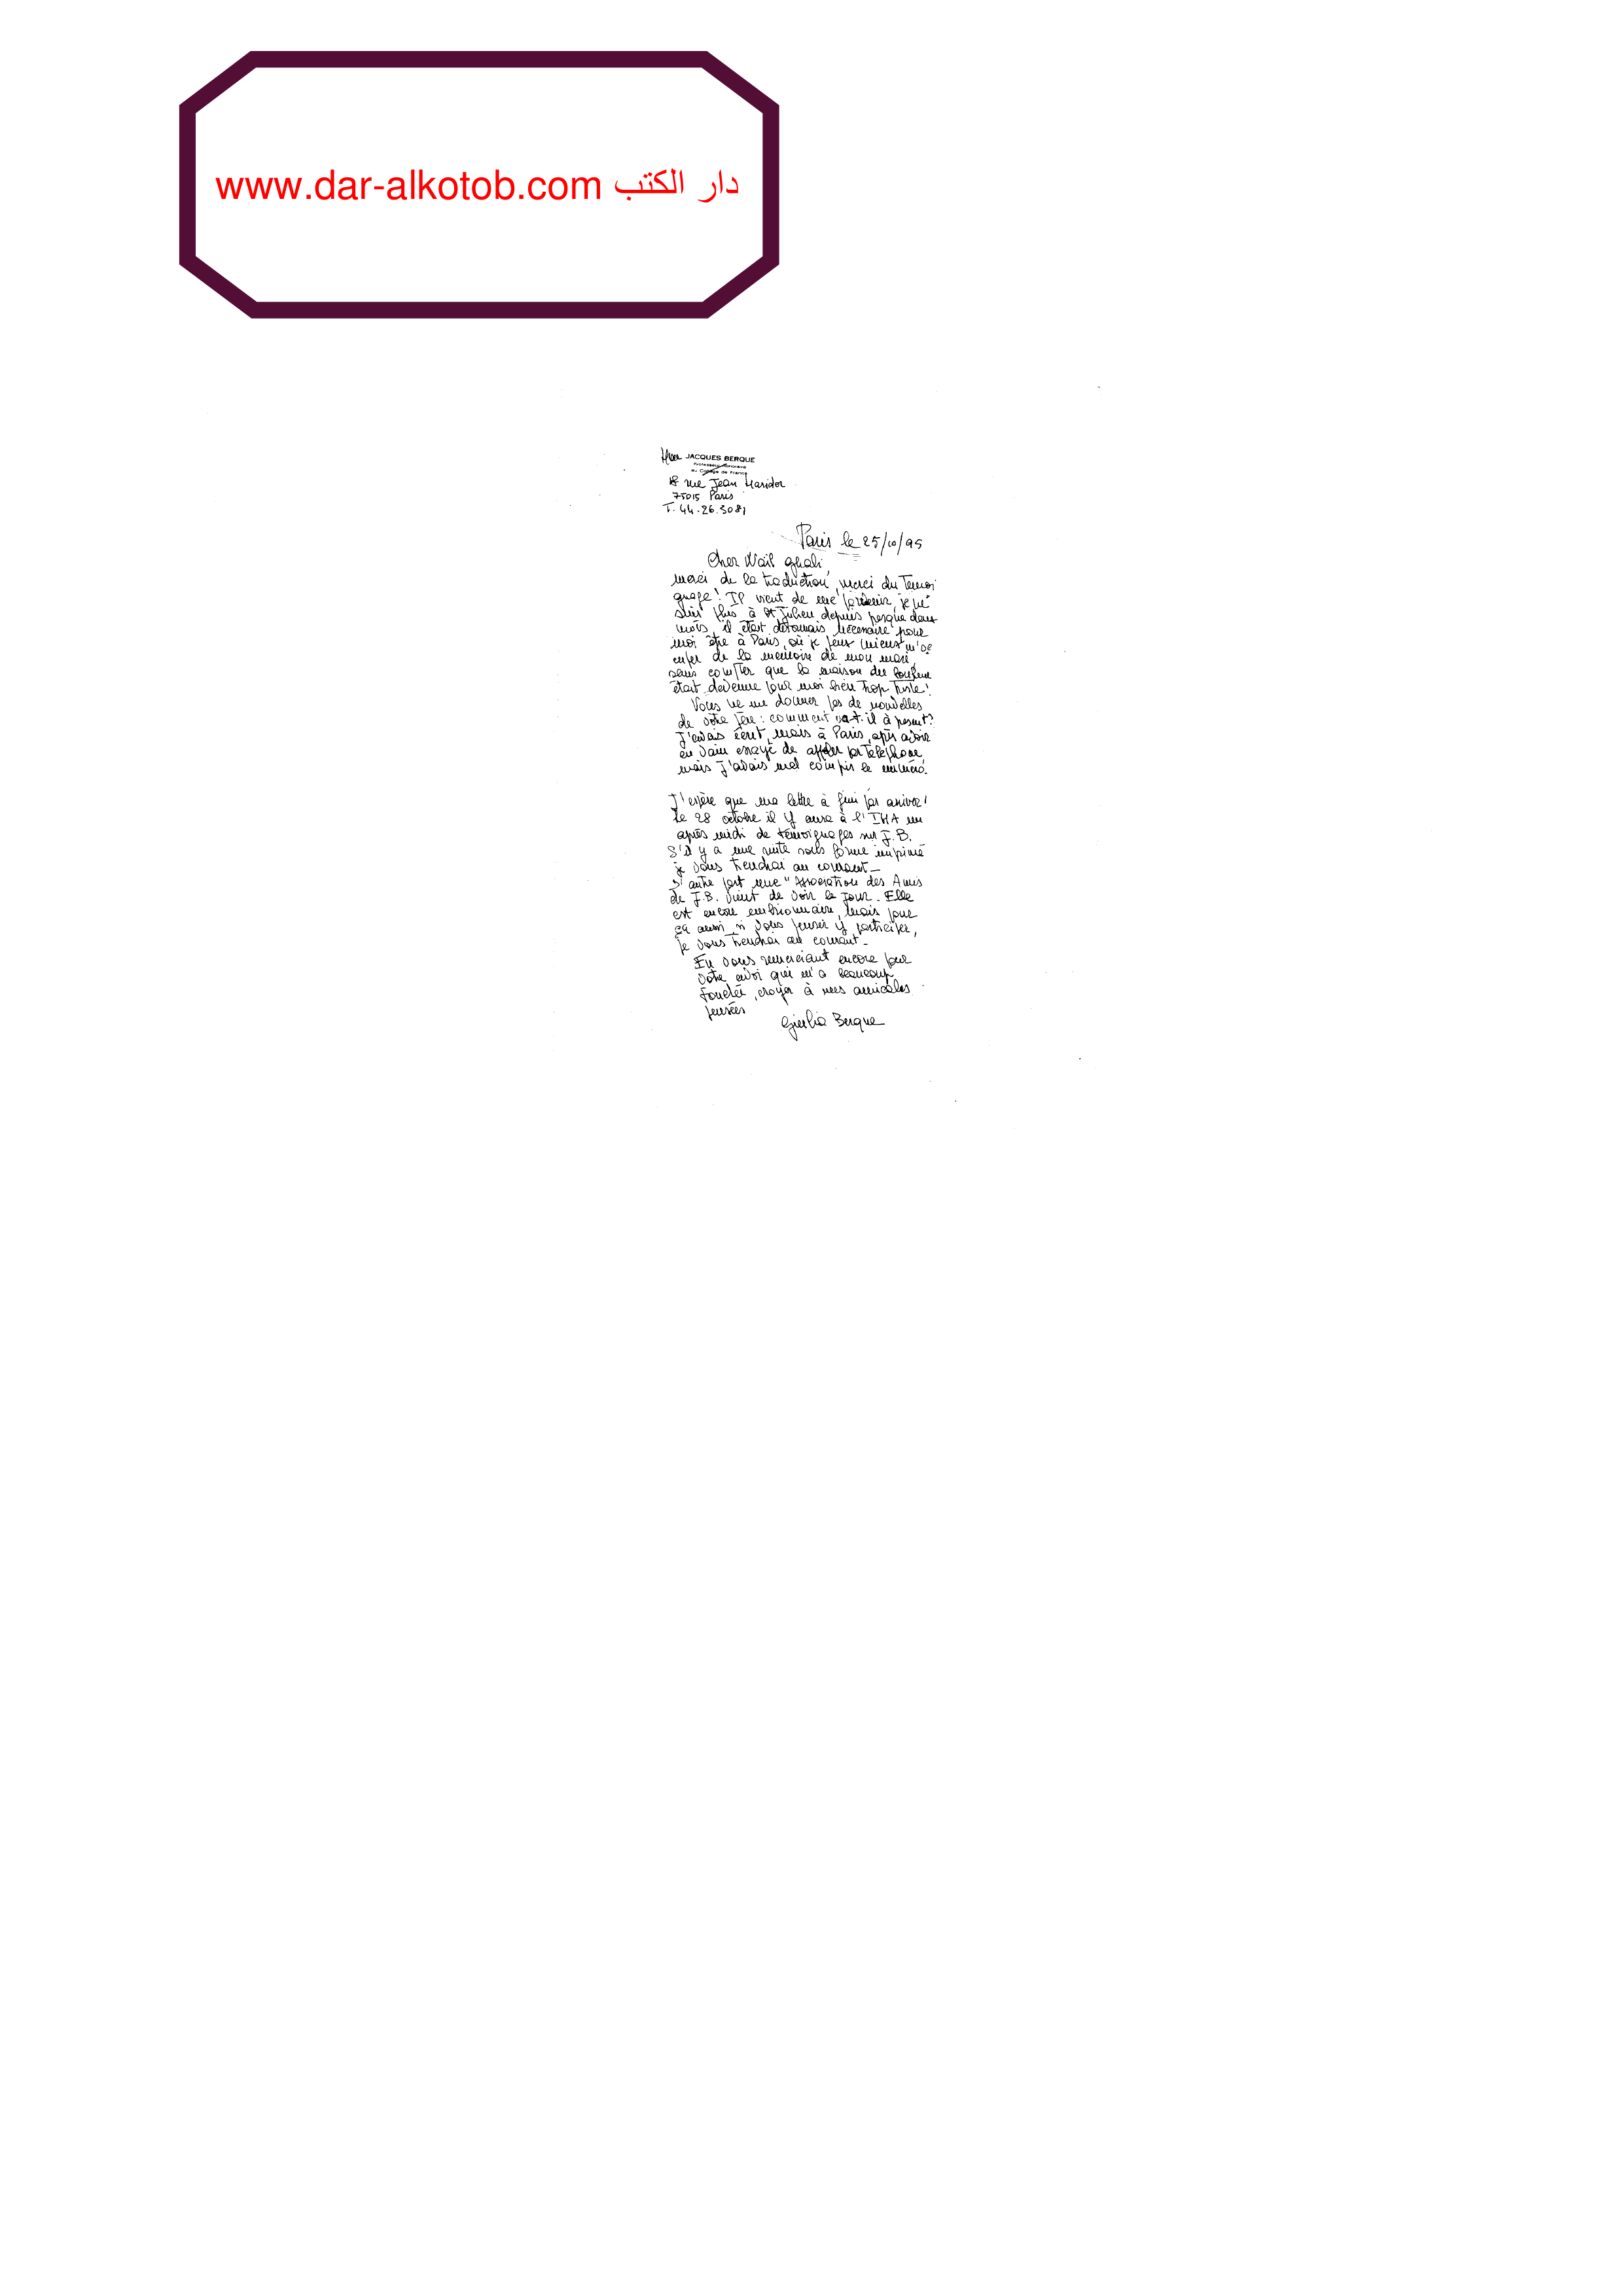 www.dar-alkotob.com دار الكتب
Mme JACQUES BERQUE
Professeur honoraire
au Collège de France
18 rue Jean Maridor
75015 Paris
T. 44.26.3081
Paris le 25/10/95
Cher Waïl Ghali,
merci de la traduction, merci du Temoi
gnage! Il vient de me parvenir, je ne
suis plus à St Julien depuis presque deux
mois, il était désormais nécessaire pour
moi être à Paris, où je peux mieux m'oc
cuper de la memoire de mon mari,
sans compter que la maison du bonheur
était devenue pour moi bien trop triste!
Vous ne me donnez pas de nouvelles
de votre père : comment va-t-il à present?
J'avais écrit, mais à Paris, après avoir
en vain essayé de appeler par Telephone,
mais j'avais mal compris le numéro.
J'espère que ma lettre à fini par arriver!
Le 28 octobre il y aura à l'IMA un
après midi de témoignages sur J.B.
S'il y a une suite sous forme imprimé
je vous tiendrai au courant_
D'autre part une "Association des Amis
de J.B. vient de voir le jour. Elle
est encore embrionnaire, mais pour
ça aussi, si vous pensez y participer,
je vous tiendrai au courant_
En vous remerciant encore pour
votre envoi qui m'a beaucoup
touchée, croyez à mes amicales
pensées
Giulia Berque